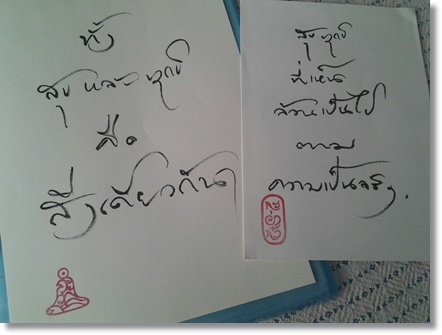 ทั้ง
สุข และ ทุกข์
คือ
สิ่งเดียวกัน
สุข ทุกข์
ที่เห็น
ล้วนเป็นไป
ตาม
ความเป็นจริง.